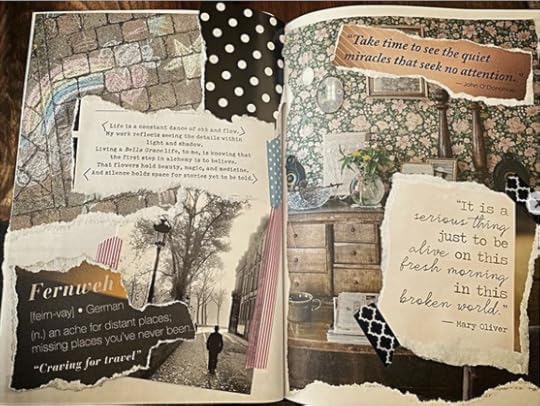 Life is a constant dance of ebb and flow.
My work reflects seeing the details within
light and shadow.
Living a Bella Grace life, to me, is knowing that
the first step in alchemy is to believe.
That flowers hold beauty, magic, and medicine.
And silence holds space for stories yet to be told.
Fernweh
[feirn-vay] • German
(n.) an ache for distant places;
missing places you've never been.
"Craving for travel"
"Take time to see the quiet
miracles that seek no attention."
—John O'Donohue
"It is a
serious thing
just to be
alive on this
fresh morning
in this
broken world."
— Mary Oliver